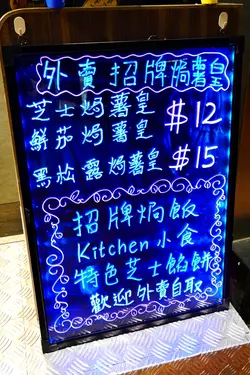 外賣招牌焗薯皇
芝士焗薯皇
鮮茄焗薯皇
$12
黑松露焗薯皇 $15
招牌焗飯
Kitchen小食
特色芝士餡餅
歡迎外賣自取